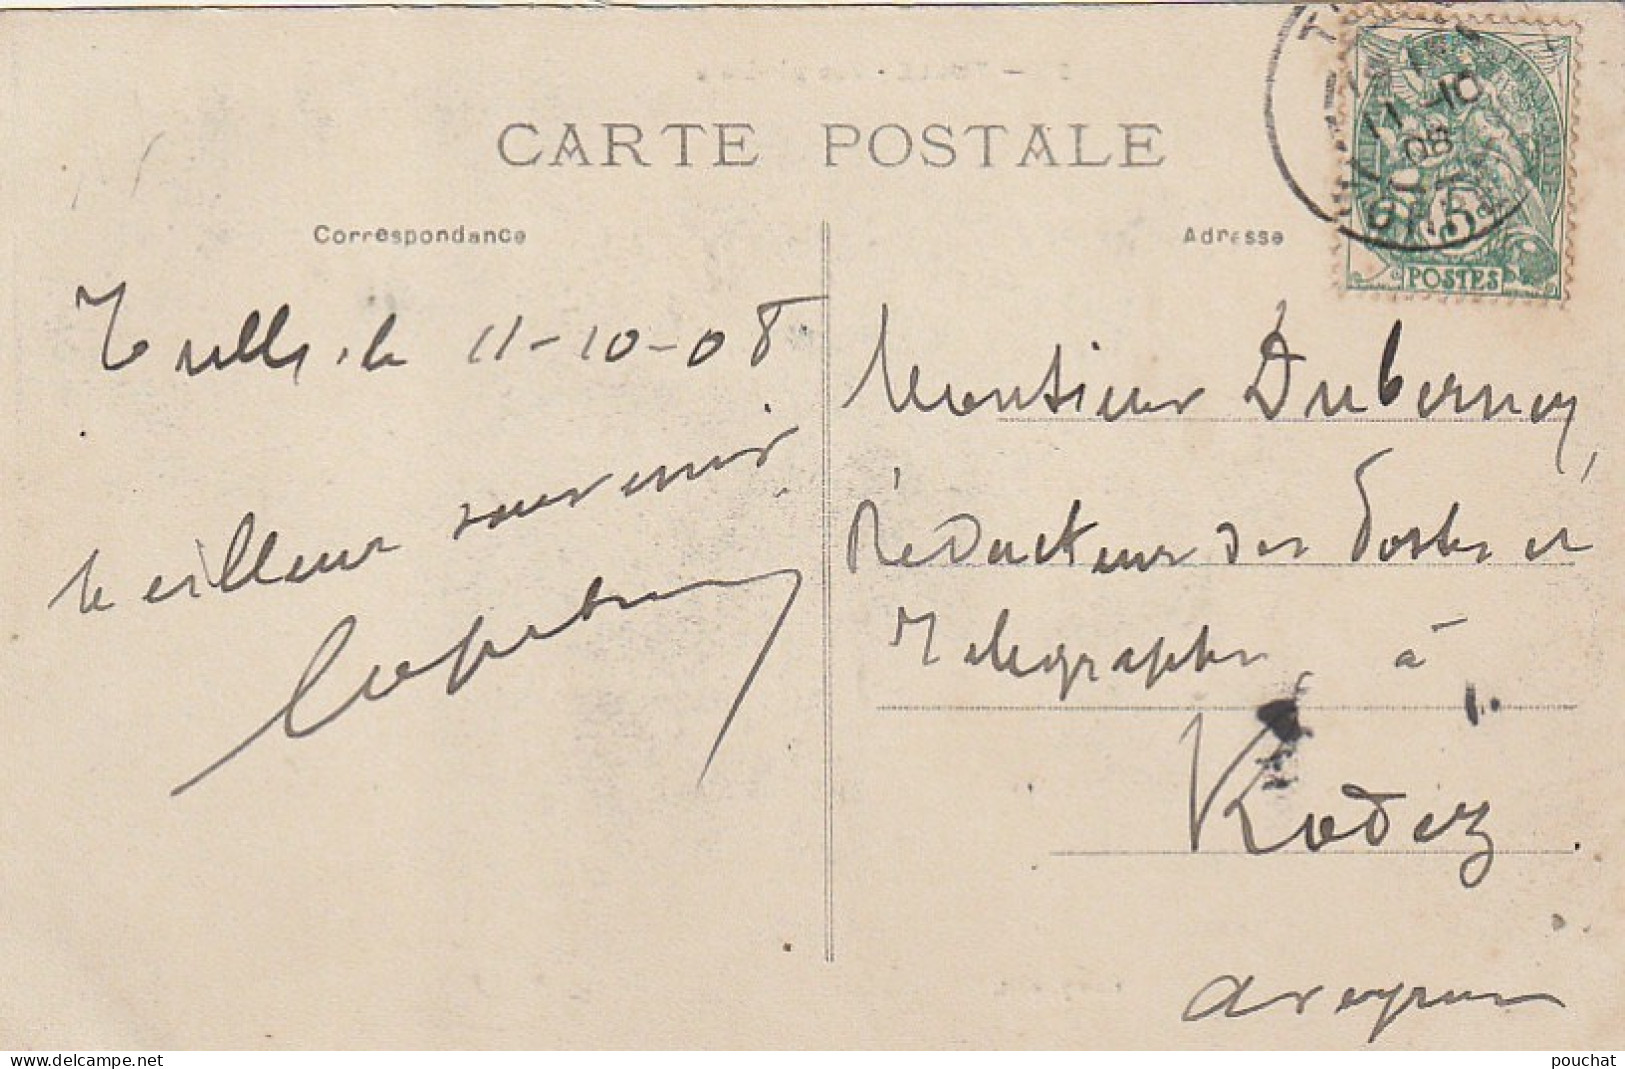 CARTE POSTALE
Correspondance
Adresse
11-10
08
5
POSTES
Tulle, le 11-10-08
Meilleur souvenir
Monsieur Duberney,
Rédacteur des Postes et
Télégraphes à
Rodez.
Aveyron
delcampe.net
pouchat